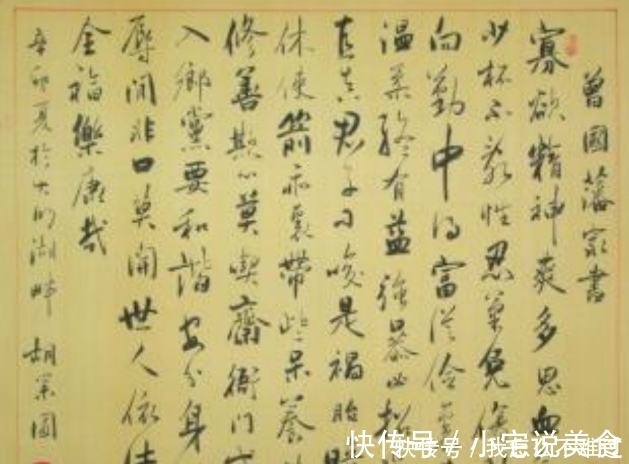 曾國藩家書
寡欲精神爽多思血
少杯不亂性忍氣免傷
向勤中得富從儉
温柔終有益強暴必招
真君子刁唆是禍胎暗
休使箭乖裏帶些呆養
修善欺心莫喫齋衙門
入鄉黨要和諧安分身
辱閒非口莫開世人依
全福樂康哉
辛卯夏於大明湖畔 胡國
快传号/小宝说美食